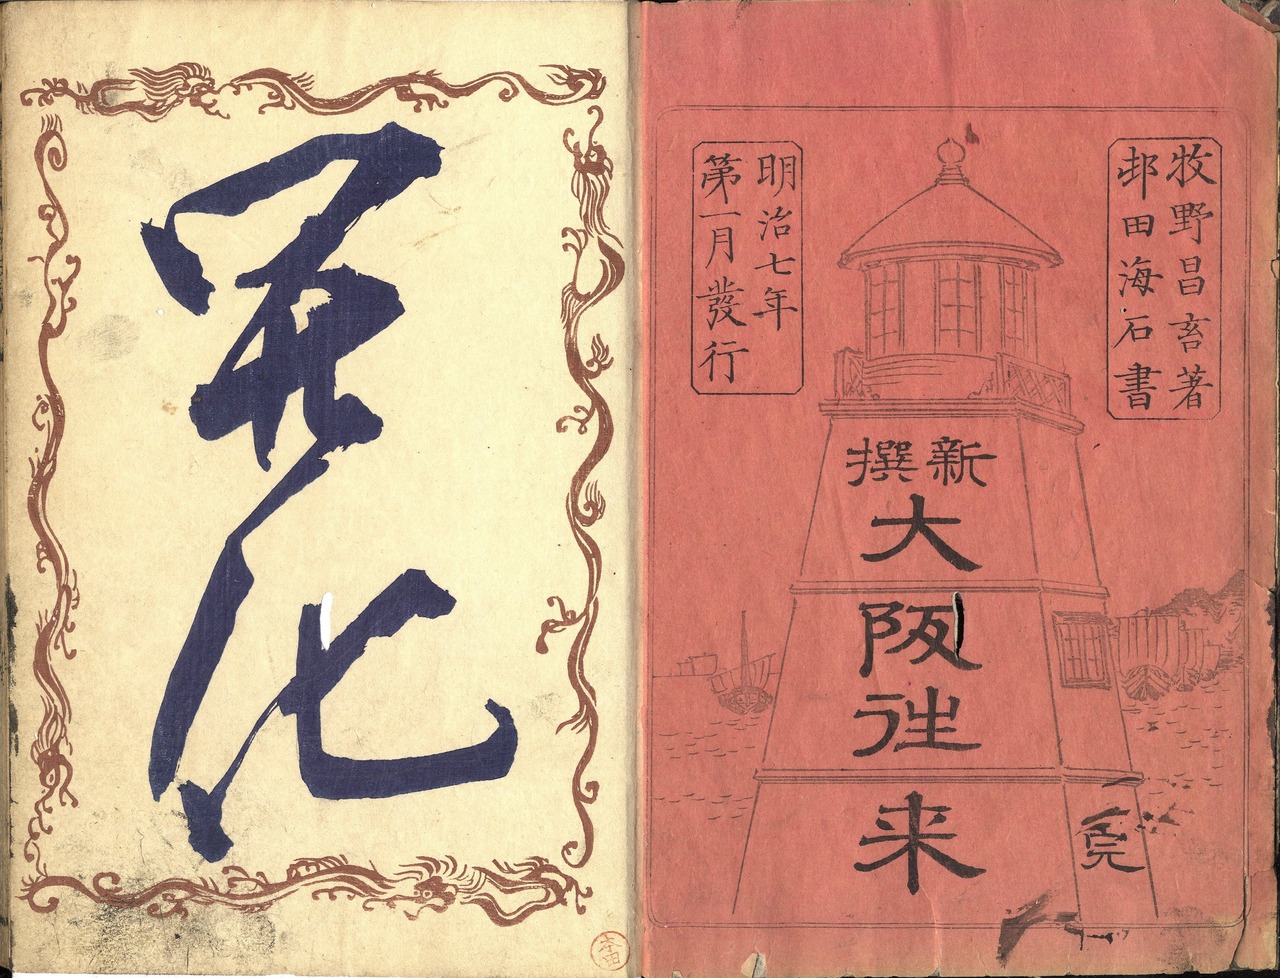 牧野昌著
邨田海石書
新撰
大阪徃来
完
明治七年
第一月發行
開化